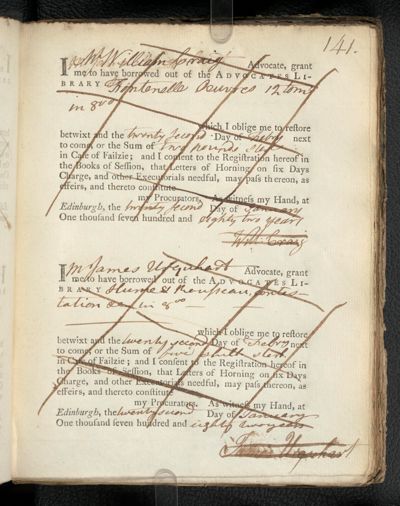 141.
I Mr William Craig Advocate, grant
me to have borrowed out of the ADVOCATES LI-
BRARY Fontenelle Oeuvres 12 tom
in 8vo
which I oblige me to restore
betwixt and the twenty second Day of next
to come, or the Sum of two pounds sterl
in Case of Failzie; and I consent to the Registration hereof in
the Books of Session, that Letters of Horning on six Days
Charge, and other Executorials needful, may pass thereon, as
effeirs, and thereto constitute
my Procurators. As witness my Hand, at
Edinburgh, the twenty second Day of January
One thousand seven hundred and eighty two years
Will: Craig
I Mr James Urquhart Advocate, grant
me to have borrowed out of the ADVOCATES LI-
BRARY Hume & Rousseau, contes-
tation in 8vo
which I oblige me to restore
betwixt and the twenty second Day of next
to come, or the Sum of five shill sterl
in Case of Failzie; and I consent to the Registration hereof in
the Books of Session, that Letters of Horning on six Days
Charge, and other Executorials needful, may pass thereon, as
effeirs, and thereto constitute
my Procurators. As witness my Hand, at
Edinburgh, the twenty second Day of January
One thousand seven hundred and eighty two years
James Urquhart